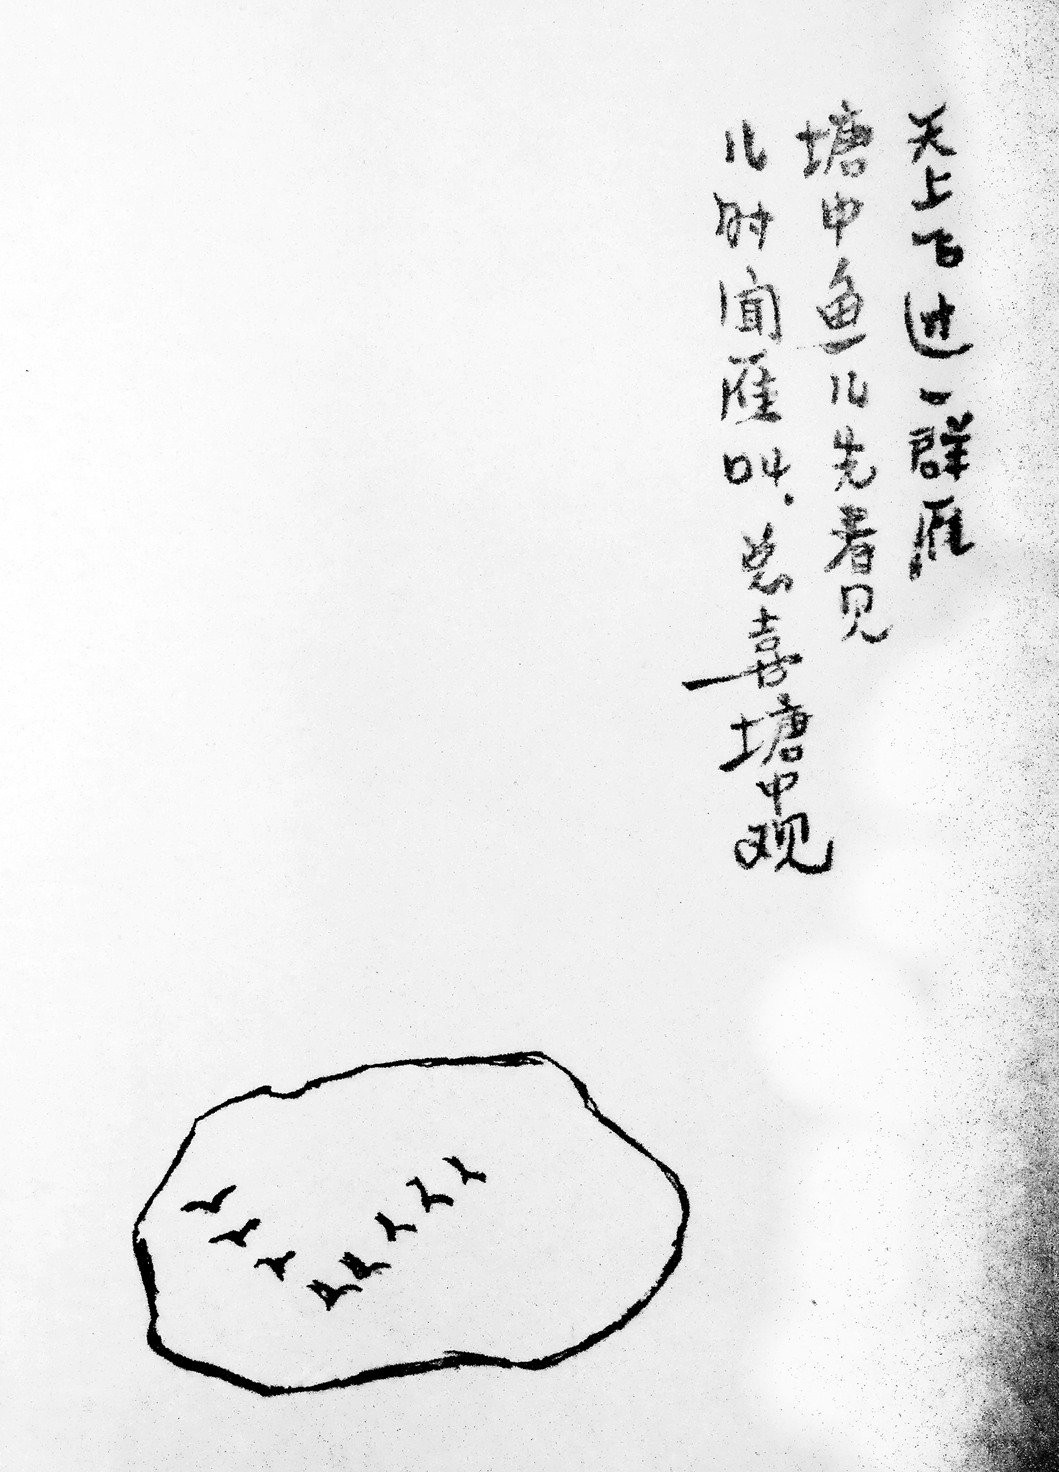 天上飞过一群雁
塘中鱼儿先看见
儿时闻雁叫.总喜塘中观